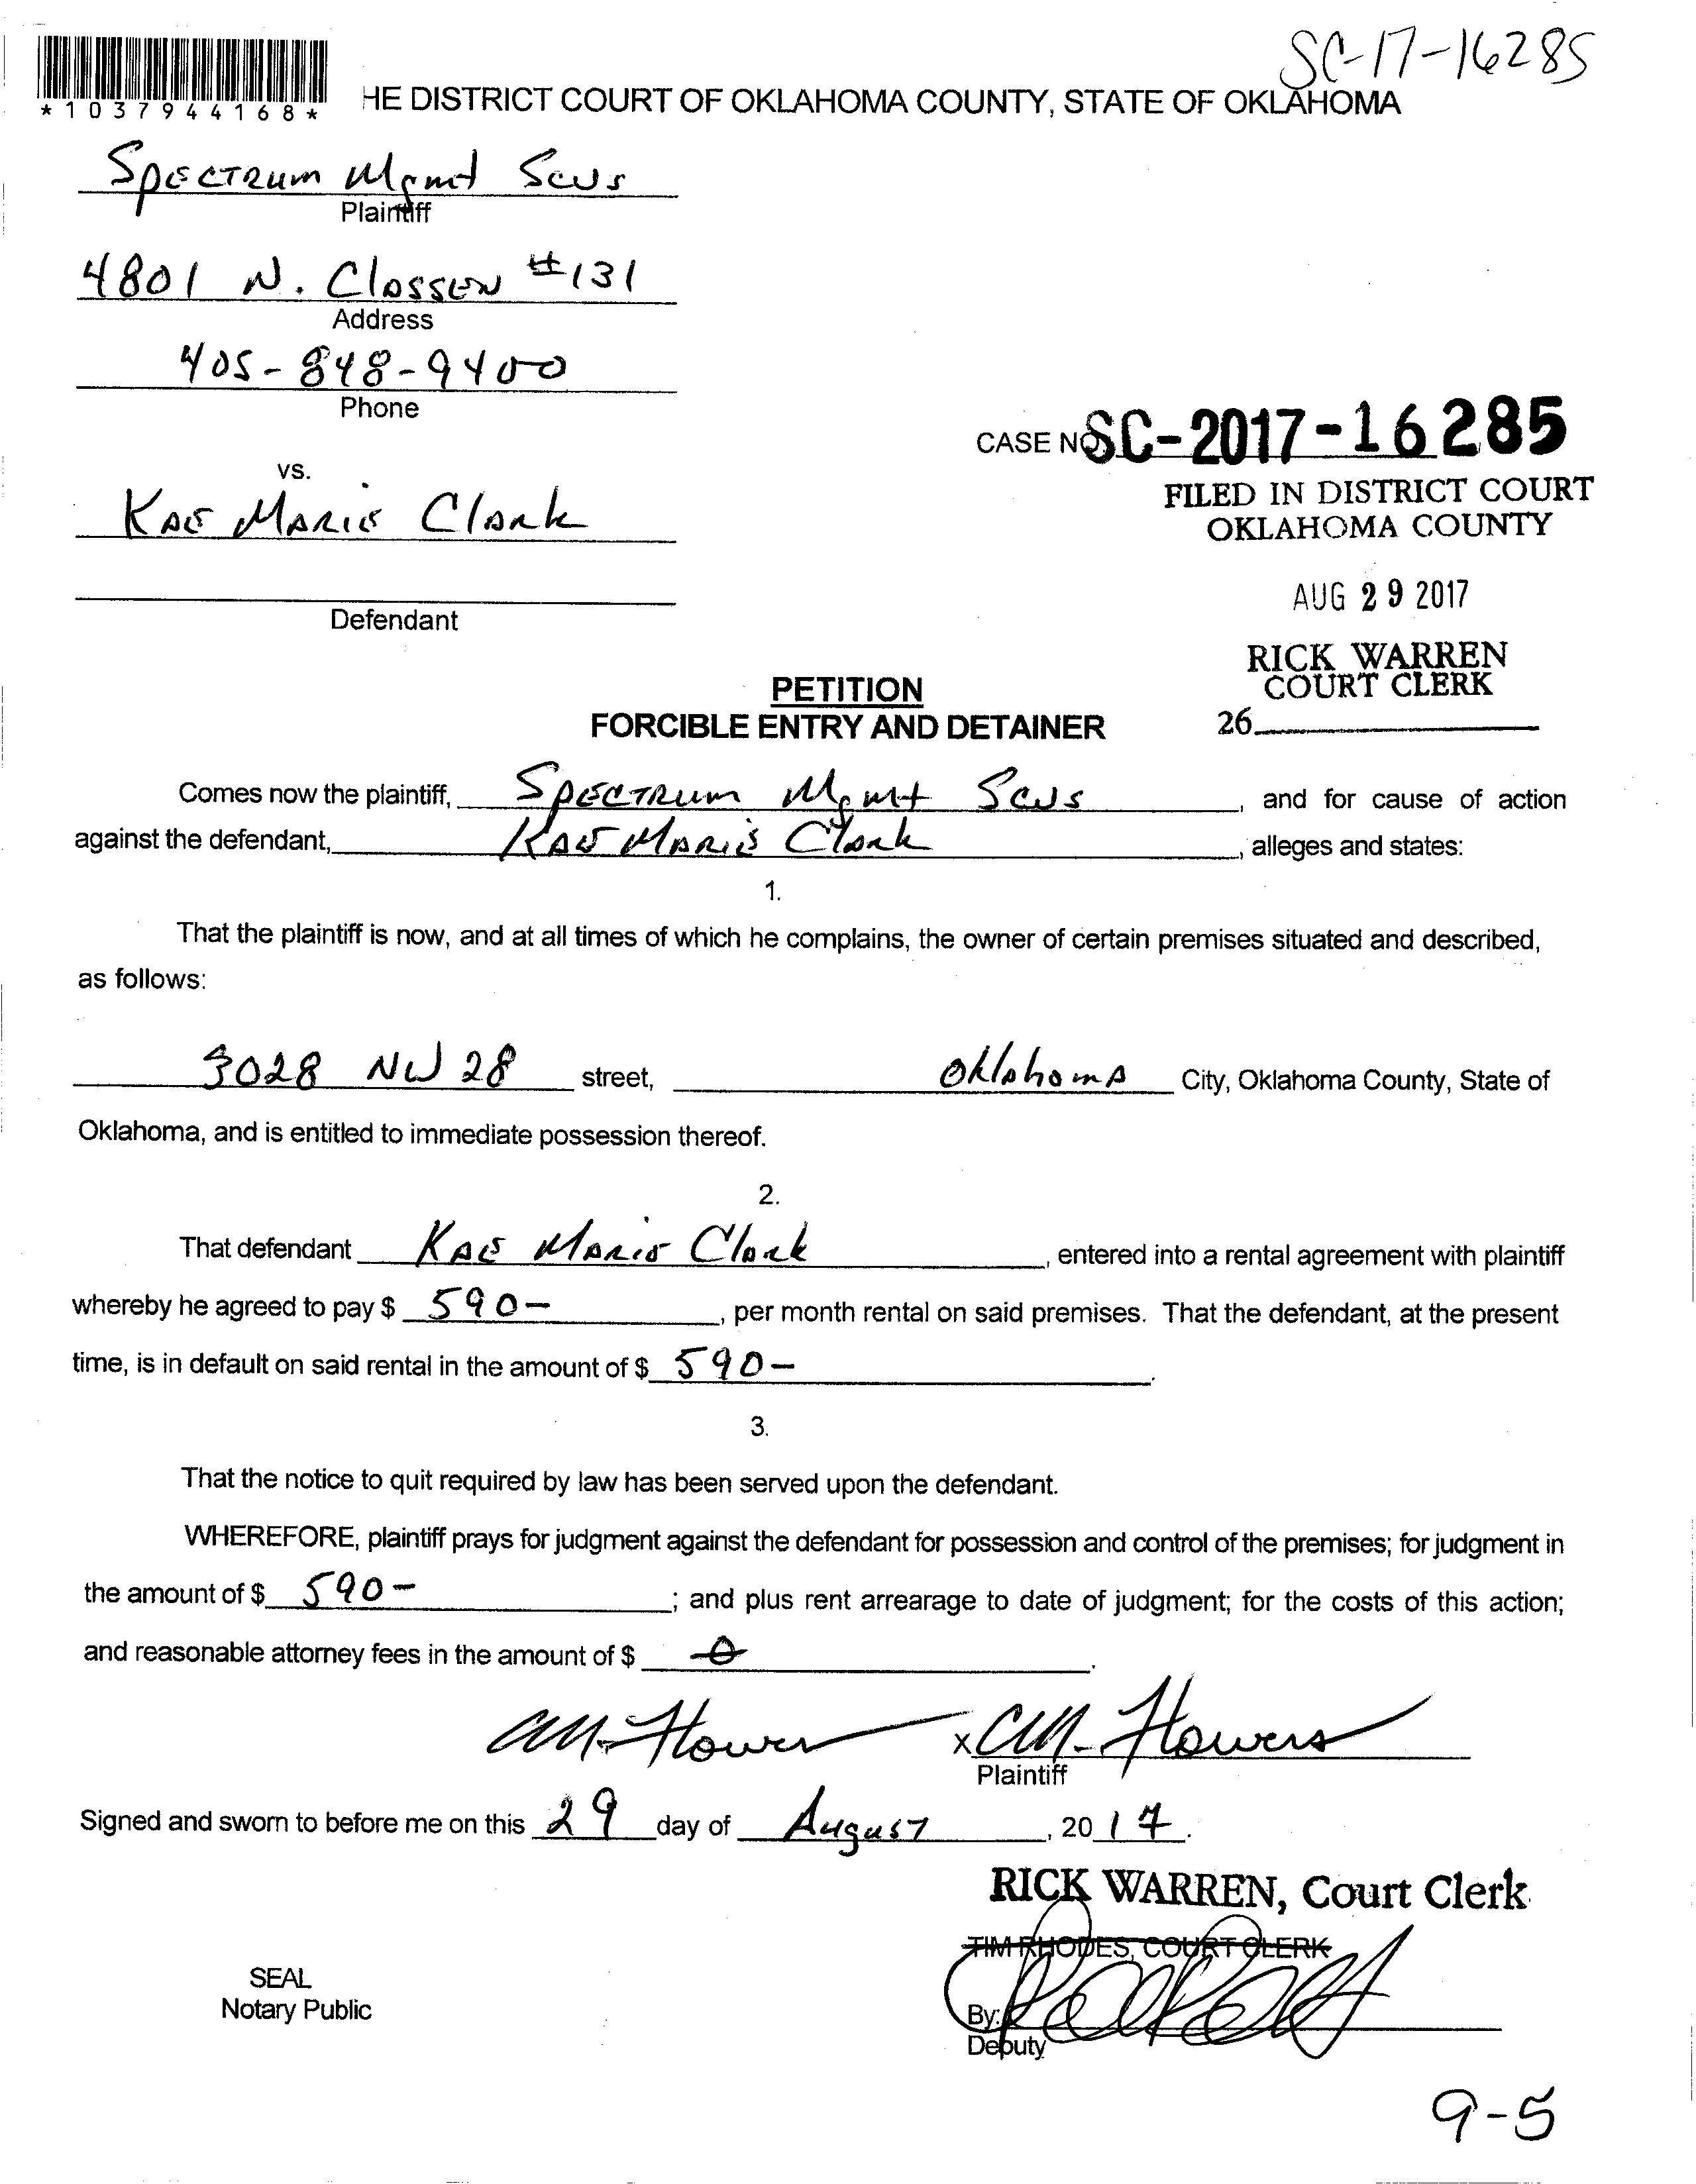 SC-17-16285
*1037944168*
HE DISTRICT COURT OF OKLAHOMA COUNTY, STATE OF OKLAHOMA
Spectrum Mgmt Scvs
Plaintiff
4801 N. Classen #131
Address
405-848-9400
Phone
CASE NO SC-2017-16285
FILED IN DISTRICT COURT
OKLAHOMA COUNTY
vs.
Kae Marie Clark
AUG 29 2017
Defendant
RICK WARREN
COURT CLERK
26
PETITION
FORCIBLE ENTRY AND DETAINER
Comes now the plaintiff, Spectrum Mgmt Scvs, and for cause of action
against the defendant, Kae Marie Clark, alleges and states:
1.
That the plaintiff is now, and at all times of which he complains, the owner of certain premises situated and described,
as follows:
3028 NW 28 street, Oklahoma City, Oklahoma County, State of
Oklahoma, and is entitled to immediate possession thereof.
2.
That defendant Kae Marie Clark, entered into a rental agreement with plaintiff
whereby he agreed to pay $ 590-, per month rental on said premises. That the defendant, at the present
time, is in default on said rental in the amount of $ 590-.
3.
That the notice to quit required by law has been served upon the defendant.
WHEREFORE, plaintiff prays for judgment against the defendant for possession and control of the premises; for judgment in
the amount of $ 590-; and plus rent arrearage to date of judgment; for the costs of this action;
and reasonable attorney fees in the amount of $ 0.
CM. Flowers x CM. Flowers
Plaintiff
Signed and sworn to before me on this 29 day of August, 2017.
RICK WARREN, Court Clerk
TIM RHODES, COURT CLERK
SEAL
Notary Public
By:
Deputy
9-5